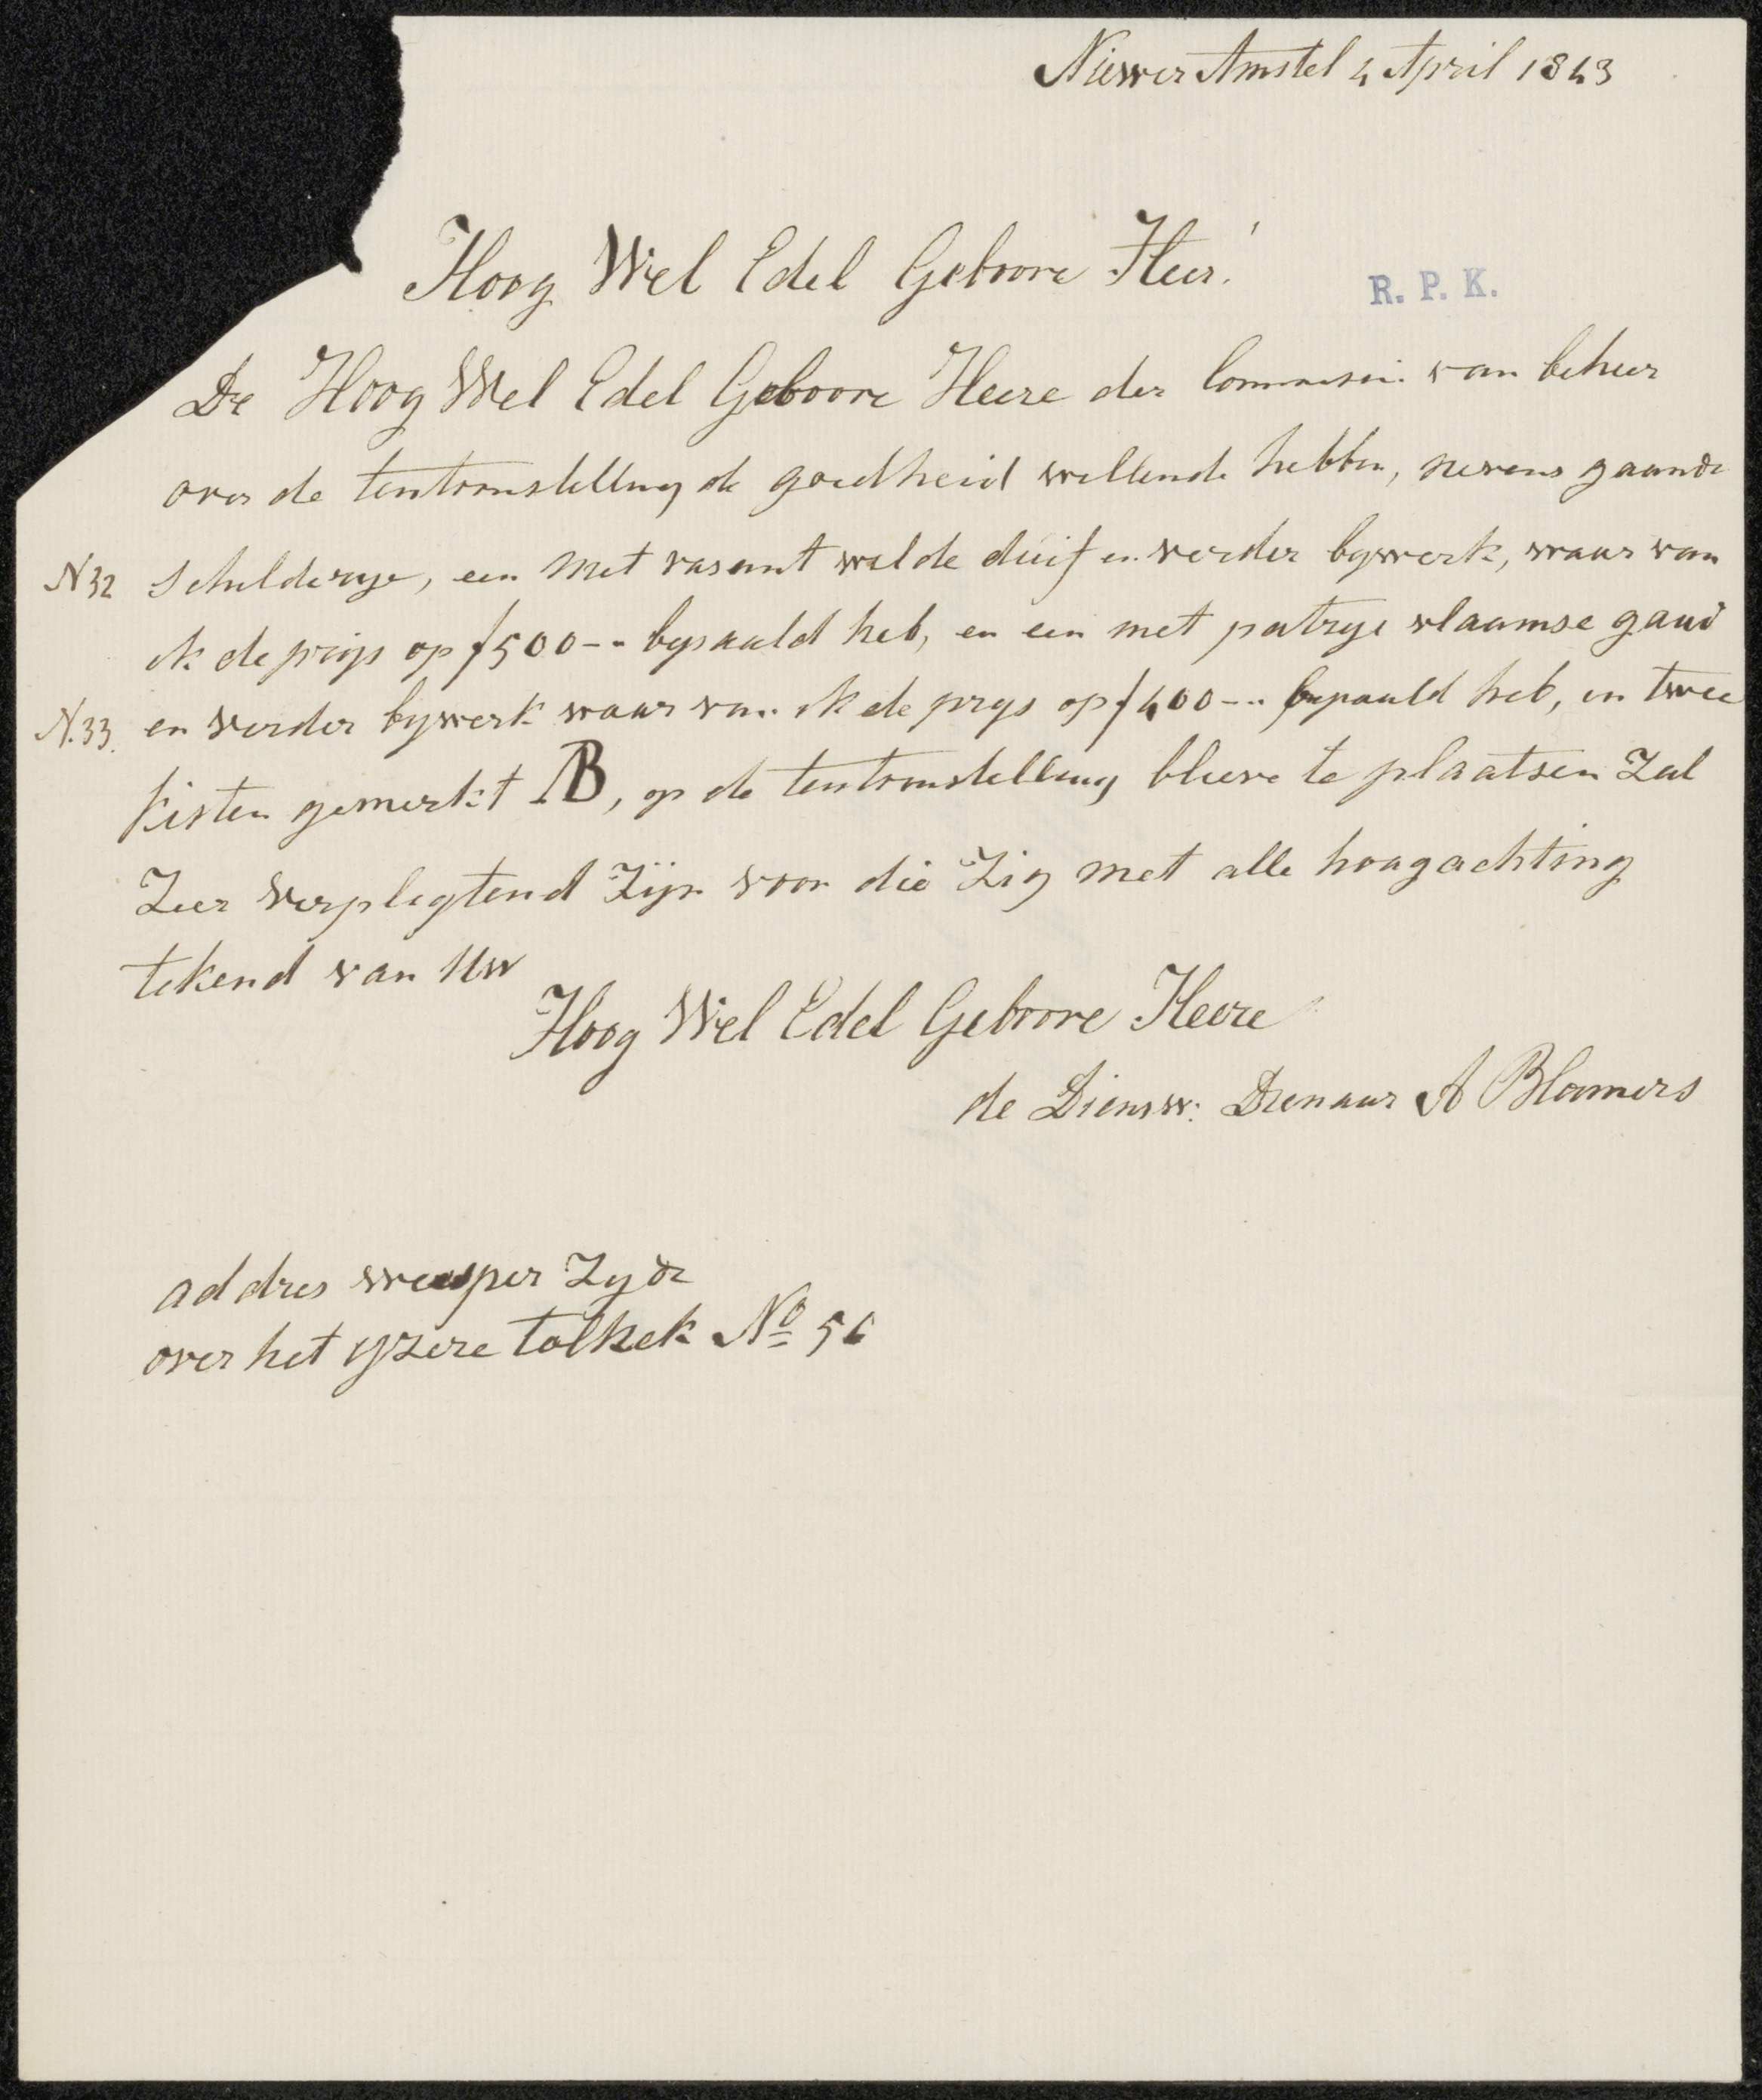 Niewer Amstel 4 April 1843
Hoog Wel Edel Geboore Heer!
R. P. K.
De Hoog Wel Edel Geboore Heere der Commissie van beheer
over de tentoonstelling de goedheid willende hebben, nevens gaande
N 32 schilderye, een met vasant wilde duif en verder bywerk, waar van
ik de prijs op f 500-- bepaald heb, en een met patryse vlaamse gaai
N. 33. en verder bywerk waar van ik de prys op f 400-- bepaald heb, in twee
kisten gemerkt AB, op de tentoonstelling blieve te plaatsen Zal
Zeer verpligtend Zijn voor die Zig met alle hoogachting
tekend van Uw
Hoog Wel Edel Geboore Heere
de Diensw: Dienaar A Blomers
addres weesper Zyde
over het yzere tolhek No 56